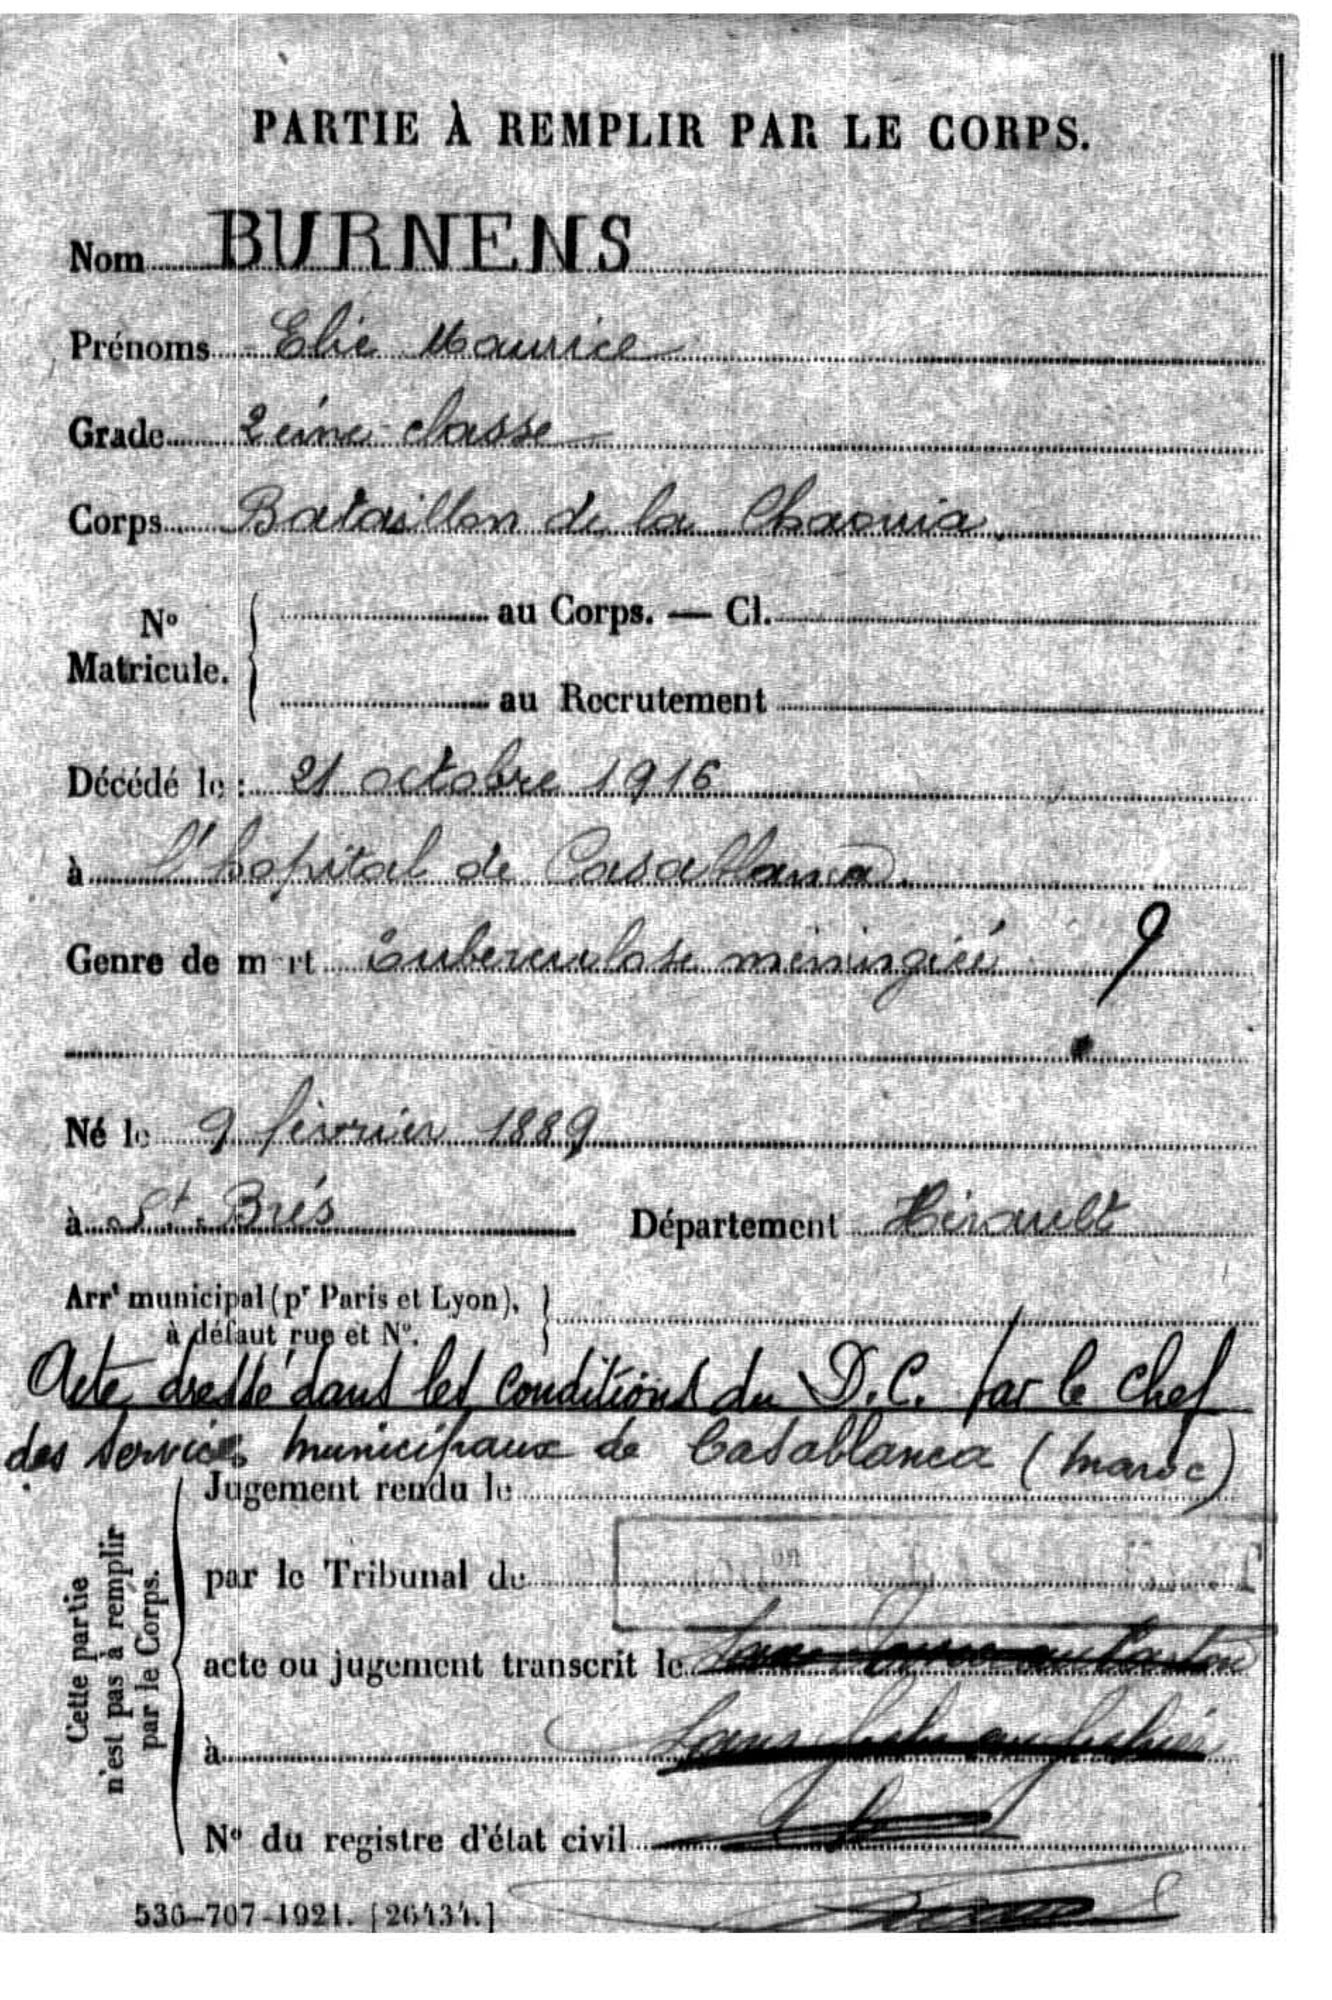 PARTIE À REMPLIR PAR LE CORPS.
Nom BURNENS
Prénoms Elie Maurice
Grade 2ème classe
Corps Bataillon de la Chaouia
N° Matricule. au Corps. — Cl.
au Recrutement
Décédé le : 21 octobre 1916
à l'hopital de Casablanca.
Genre de mort Tuberculose méningée 9
Né le 9 février 1889
à St. Brés Département Hérault
Arrt municipal (pr Paris et Lyon),
à défaut rue et N°.
Acte dressé dans les conditions du D.C. par le chef
des services municipaux de Casablanca (Maroc)
Cette partie
n'est pas à remplir
par le Corps.
Jugement rendu le
par le Tribunal de
acte ou jugement transcrit le
à
N° du registre d'état civil
530-707-1921. [26434.]